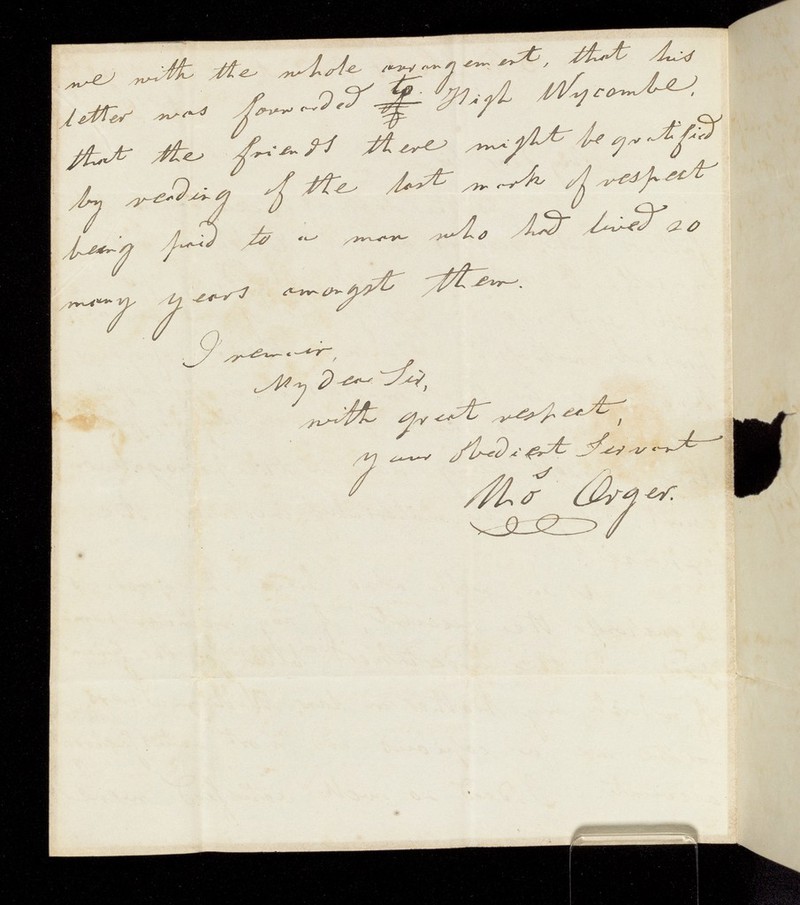 we with the whole arrangement, that his
letter was forwarded to High Wycombe,
that the friends there might be gratified
by reading of the last mark of respect
being paid to a man who had lived so
many years amongst them.
I remain,
My dear Sir,
with great respect,
your obedient Servant
Thos Orger.